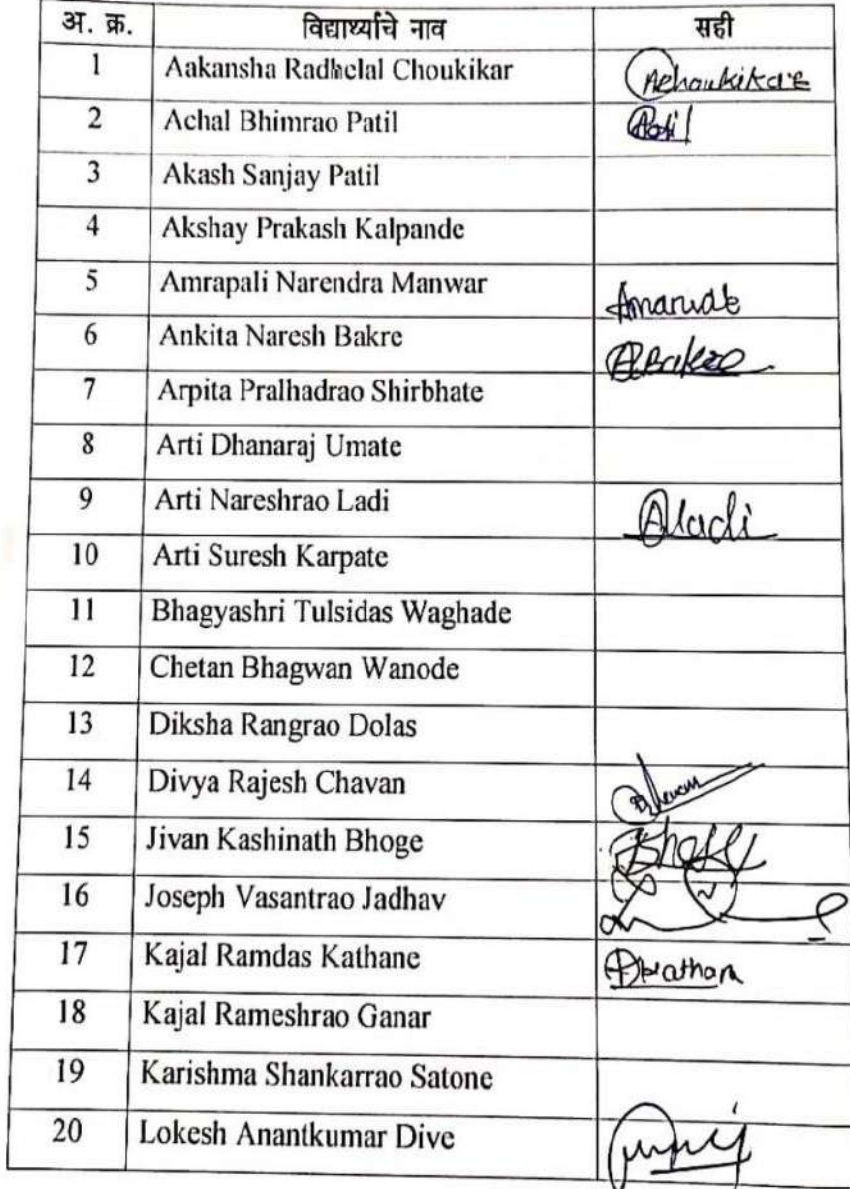 अ. क्र. विद्यार्थ्याचे नाव सही
1 Aakansha Radhelal Choukikar Achoukikar
2 Achal Bhimrao Patil Patil
3 Akash Sanjay Patil
4 Akshay Prakash Kalpande
5 Amrapali Narendra Manwar
6 Ankita Naresh Bakre ABakre
7 Arpita Pralhadrao Shirbhate
8 Arti Dhanaraj Umate
9 Arti Nareshrao Ladi Aladi
10 Arti Suresh Karpate
11 Bhagyashri Tulsidas Waghade
12 Chetan Bhagwan Wanode
13 Diksha Rangrao Dolas
14 Divya Rajesh Chavan
15 Jivan Kashinath Bhoge
16 Joseph Vasantrao Jadhav
17 Kajal Ramdas Kathane
18 Kajal Rameshrao Ganar
19 Karishma Shankarrao Satone
20 Lokesh Anantkumar Dive